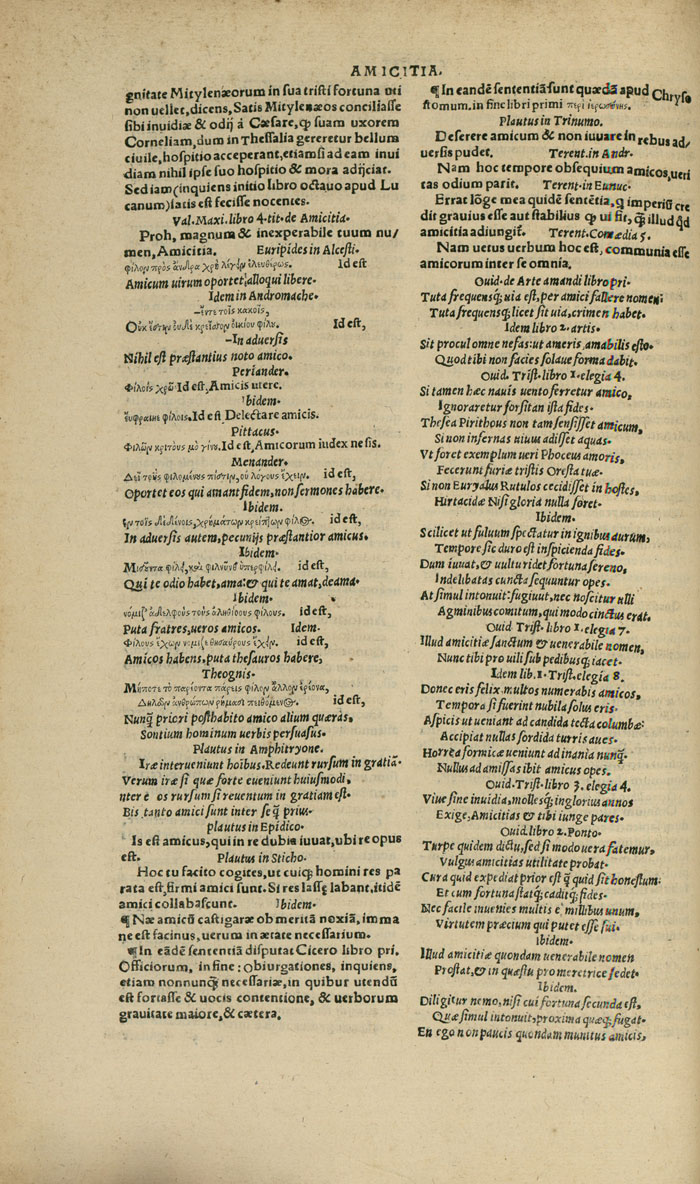 AMICITIA.
gnitate Mitylenæorum in sua tristi fortuna uti
non uellet, dicens, Satis Mitylenæos conciliasse
sibi inuidiæ & odij à Cæsare, ꝙ suam uxorem
Corneliam, dum in Thessalia gereretur bellum
ciuile, hospitio acceperant, etiamsi ad eam inui
diam nihil ipse suo hospitio & mora adijciat.
Sed iam (inquiens initio libro octauo apud Lu
canum) satis est fecisse nocentes.
Val. Maxi. libro 4. tit. de Amicitia.
Proh, magnum & inexperabile tuum nu/
men, Amicitia. Euripides in Alcesti.
φίλον πρὸς ἄνδρα χρὴ λέγειν ἐλευθέρως. Id est
Amicum uirum oportet, alloqui libere.
Idem in Andromache.
τοῖς κακοῖς,
Id est,
–In aduersis
Nihil est præstantius noto amico.
Periander.
Φίλοις χρῶ. Id est, Amicis utere.
Ibidem.
φίλοις. Id est, Delectare amicis.
Pittacus.
Id est, Amicorum iudex ne sis.
Menander.
Δεῖ τοὺς πίστιν, οὐ λόγους ἔχειν. id est,
Oportet eos qui amant fidem, non sermones habere.
Ibidem.
id est,
In aduersis autem, pecunijs præstantior amicus.
Ibidem.
id est,
Qui te odio habet, ama: & qui te amat, deama.
Ibidem.
νόμιζ' ἀδελφοὺς τοὺς ἀληθινοὺς φίλους. id est,
Puta fratres, ueros amicos. Idem.
Φίλους ἔχων νόμιζε θησαυροὺς ἔχειν. id est,
Amicos habens, puta thesauros habere,
Theognis.
Μήποτε τὸ παρεόντα φίλον ἄλλον
ἀνθρώπων ῥήμασι id est,
Nunꝗ priori posthabito amico alium quæras,
Sontium hominum uerbis persuasus.
Plautus in Amphitryone.
Iræ interueniunt hoībus. Redeunt rursum in gratiā.
Verum iræ si quæ forte eueniunt huiusmodi,
nter e os rursum si reuentum in gratiam est.
Bis tanto amici sunt inter se ꝗ prius.
Plautus in Epidico.
Is est amicus, qui in re dubia iuuat, ubi re opus
est. Plautus in Sticho.
Hoc tu facito cogites, ut cuiqꝫ homini res pa
rata est, firmi amici sunt. Si res lassę labant, itidē
amici collabascunt. Ibidem.
¶ Næ amicū castigare ob meritā noxiā, imma
ne est facinus, uerum in ætate necessarium.
¶ In eādē sententiā disputat Cicero libro pri.
Officiorum, in fine: Obiurgationes, inquiens,
etiam nonnunꝗ necessariæ, in quibur utendū
est fortasse & uocis contentione, & uerborum
grauitate maiore, & cætera.
¶ In eandē sententiā sunt quædā apud Chryso
stomum, in fine libri primi περὶ ἱερωσύνης.
Plautus in Trinumo.
Deserere amicum & non iuuare in rebus ad/
uersis pudet. Terent. in Andr.
Nam hoc tempore obsequium amicos, ueri
tas odium parit. Terent. in Eunuc.
Errat lōge mea quidē sentētia, q imperiū cre
dit grauius esse aut stabilius ꝙ ui fit, ꝗ illud qd
amicitia adiungit. Terent. Comædia 5.
Nam uetus uerbum hoc est, communia esse
amicorum inter se omnia.
Ouid. de Arte amandi libro pri.
Tuta frequensqꝫ uia est, per amici fallere nomen:
Tuta frequensqꝫ licet sit uia, crimen habet.
Idem libro 2. artis.
Sit procul omne nefas: ut ameris, amabilis esto.
Quod tibi non facies solaue forma dabit.
Ouid. Trist. libro 1. elegia 4.
Si tamen hæc nauis uento ferretur amico,
Ignoraretur forsitan ista fides.
Thesea Pirithous non tam sensisset amicum,
Si non infernas uiuus adisset aquas.
Vt foret exemplum ueri Phoceus amoris,
Fecerunt furiæ tristis Oresta tuæ.
Si non Euryalus Rutulos cecidisset in hostes,
Hirtacidæ Nisi gloria nulla foret.
Ibidem.
Scilicet ut fuluum spectatur in ignibus aurum,
Tempore sic duro est inspicienda fides.
Dum iuuat, & uultu ridet fortuna sereno,
Indelibatas cuncta sequuntur opes.
At simul intonuit: fugiunt, nec noscitur ulli
Agminibus comitum, qui modo cinctus erat.
Ouid Trist. libro 1. elegia 7.
Illud amicitiæ sanctum & uenerabile nomen,
Nunc tibi pro uili sub pedibusqꝫ iacet.
Idem lib. 1. Trist. elegia 8.
Donec eris felix multos numerabis amicos,
Tempora si fuerint nubila solus eris.
Aspicis ut ueniant ad candida tecta columbæ:
Accipiat nullas sordida turris aues.
Horrea formicæ ueniunt ad inania nunꝗ.
Nullus ad amissas ibit amicus opes.
Ouid. Trist. libro 3. elegia 4.
Viue sine inuidia, mollesqꝫ inglorius annos
Exige, Amicitias & tibi iunge pares.
Ouid libro 2. Ponto.
Turpe quidem dictu, sed si modo uera fatemur,
Vulgus amicitias utilitate probat.
Cura quid expediat prior est ꝗ quid sit honestum:
Et cum fortuna statqꝫ caditqꝫ fides.
Nec facile inuenies multis è millibus unum,
Virtutem præcium qui putet esse sui.
Ibidem.
Illud amicitiæ quondam uenerabile nomen
Prostat, & in quæstu pro meretrice sedet.
Ibidem.
Diligitur nemo, nisi cui fortuna secunda est,
Quæ simul intonuit, proxima quæqꝫ fugat.
En ego non paucis quondam munitus amicis,